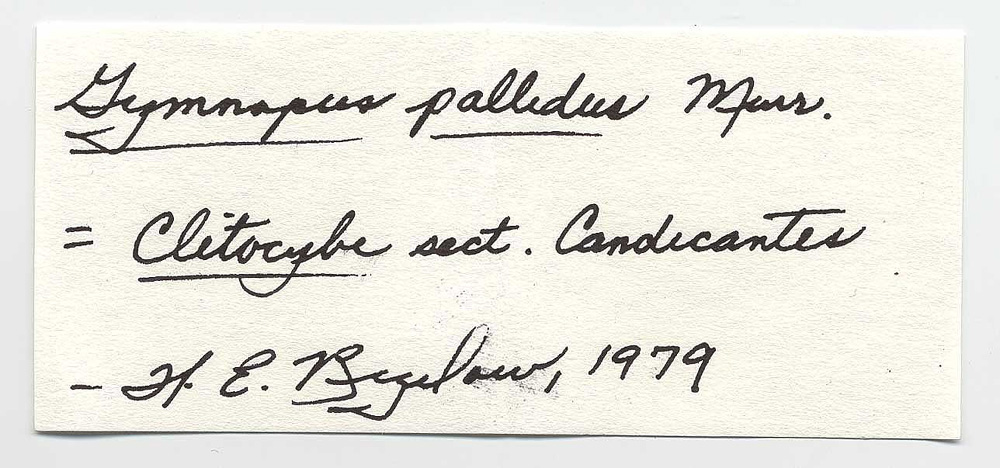 Gymnopus pallidus Murr.
= Clitocybe sect. Candicantes
- H. E. Bigelow, 1979